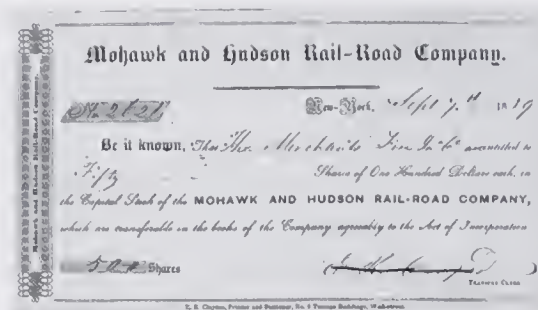 Mohawk and Hudson Rail-Road Company.
Mohawk and Hudson Rail-Road Company.
New-York, Sept 7th 1839
Be it known, That The Merchants Fire In Co are entitled to
Fifty Shares of One Hundred Dollars each, in
the Capital Stock of the MOHAWK AND HUDSON RAIL-ROAD COMPANY,
which are transferable on the books of the Company agreeably to the Act of Incorporation
50 Shares
TRANSFER CLERK
E. B. Clayton, Printer and Stationer, No. Tontine Buildings, Wall-street.